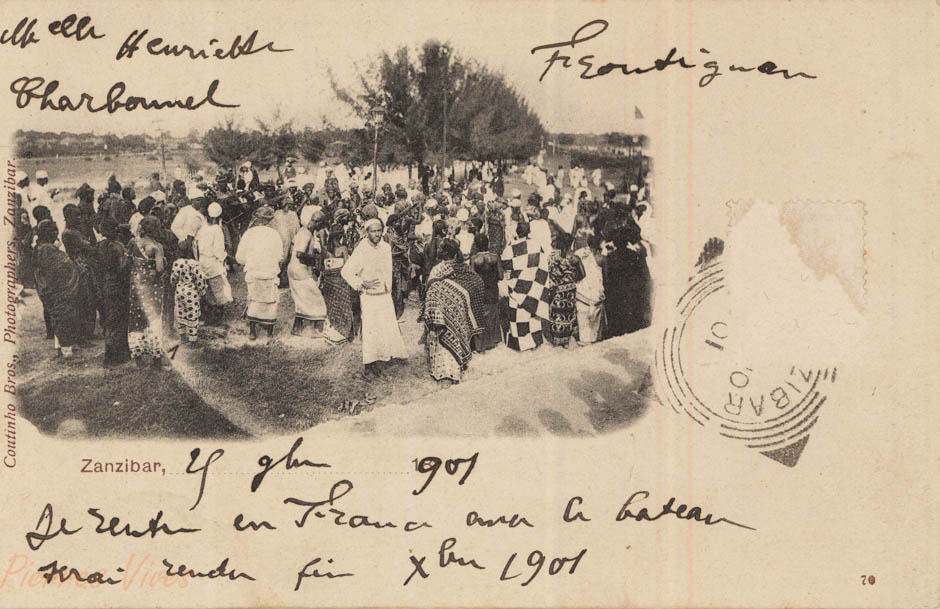 Melle Henriette
Charbonnel
Frontignan
Coutinho Bros., Photographers, Zanzibar.
ZIBAR
01
Zanzibar, 25 9bre 1901
Je rentre en France avec le bateau
serai rendu fin Xbre 1901
Pierres Vives
70